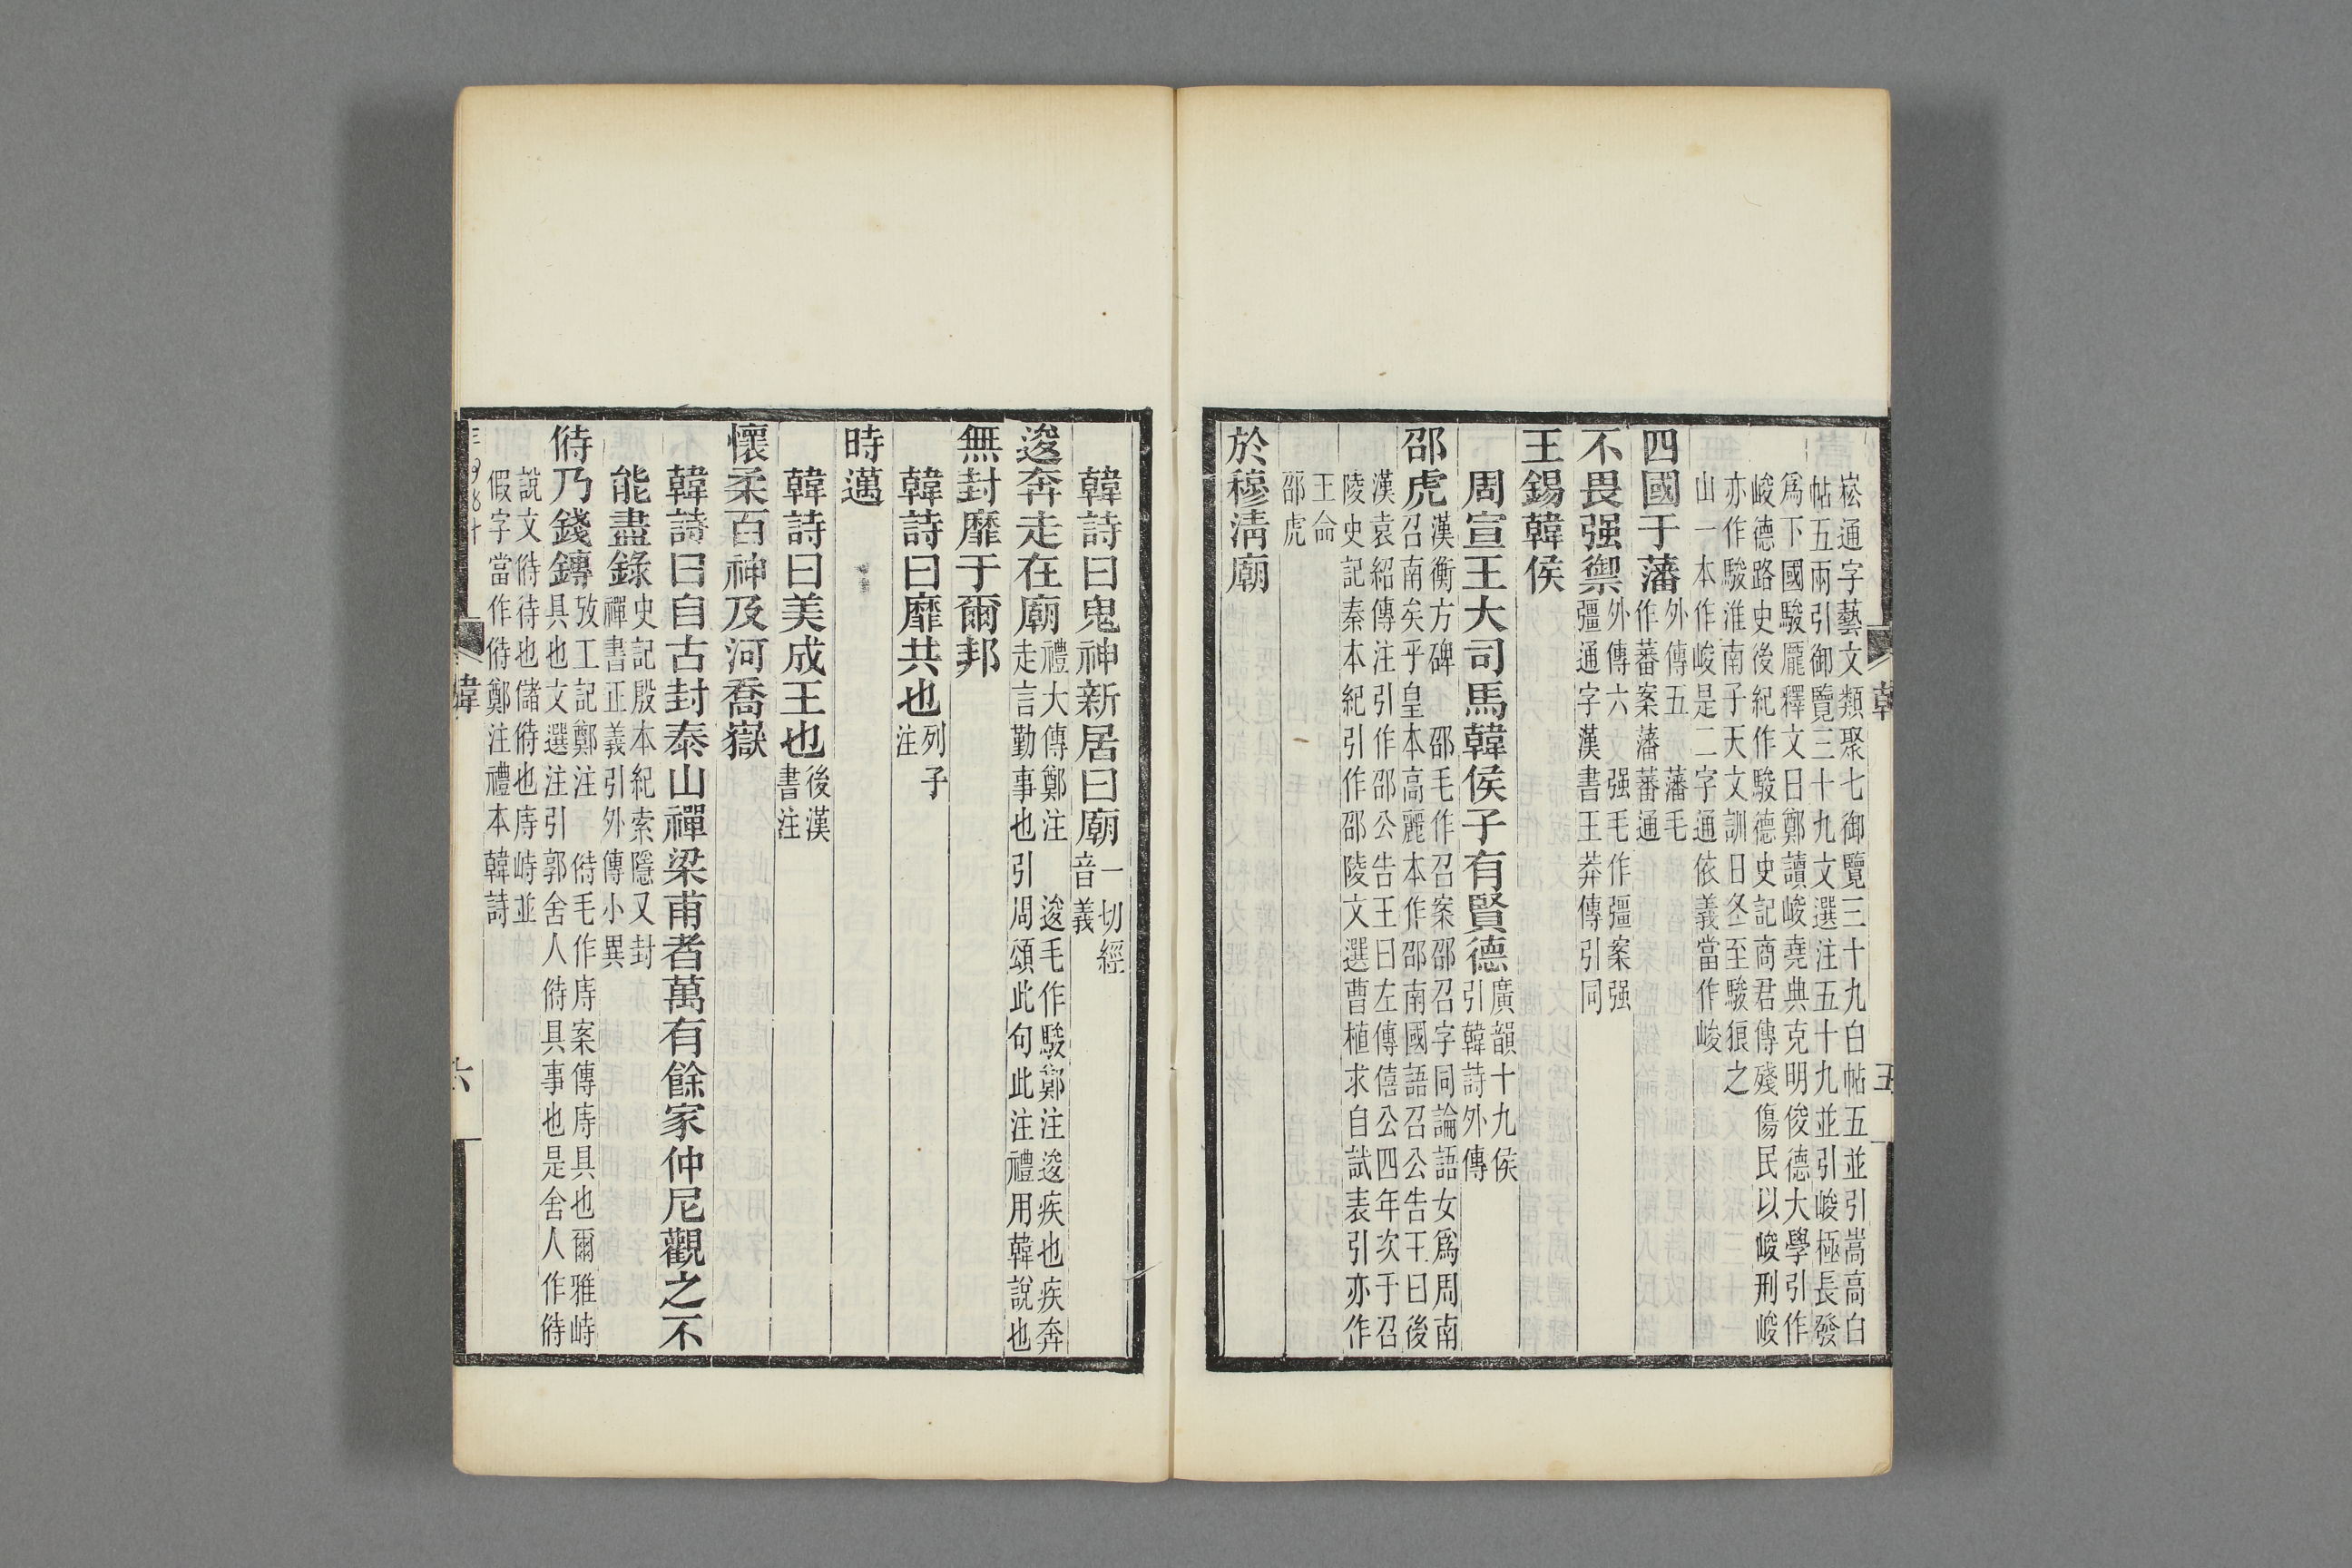 崧通字藝文類聚七御覽三十九白帖五並引嵩高白
帖五兩引御覽三十九文選注五十九並引峻極長發
爲下國駿厖釋文曰鄭讀峻堯典克明俊德大學引作
峻德路史後紀作駿德史記商君傳殘傷民以峻刑峻
亦作駿淮南子天文訓日冬至駿狼之
山一本作峻是二字通依義當作峻
四國于藩
外傳五 藩毛
作蕃案藩蕃通
不畏强禦
外傳六 强毛作彊案强
彊通字漢書王莽傳引同
王錫韓侯
周宣王大司馬韓侯子有賢德
廣韻十九侯
引韓詩外傳
邵虎
漢衡方碑 邵毛作召案邵召字同論語女爲周南
召南矣乎皇本高麗本作邵南國語召公告王曰後
漢袁紹傳注引作邵公告王曰左傳僖公四年次于召
陵史記秦本紀引作邵陵文選曹植求自試表引亦作
王命
邵虎
於穆淸廟
韓
五
韓詩曰鬼神新居曰廟
一切經
音義
逡奔走在廟
禮大傳鄭注 逡毛作駿鄭注逡疾也疾奔
走言勤事也引周頌此句此注禮用韓說也
無封靡于爾邦
韓詩曰靡共也
列子
注
時邁
韓詩曰美成王也
後漢
書注
懷柔百神及河喬嶽
韓詩曰自古封泰山禪梁甫者萬有餘家仲尼觀之不
能盡錄
史記殷本紀索隱又封
禪書正義引外傳小異
偫乃錢鎛
攷工記鄭注 偫毛作庤案傳庤具也爾雅峙
具也文選注引郭舍人偫具事也是舍人作偫
說文偫待也儲偫也庤峙並
假字當作偫鄭注禮本韓詩
韓
六